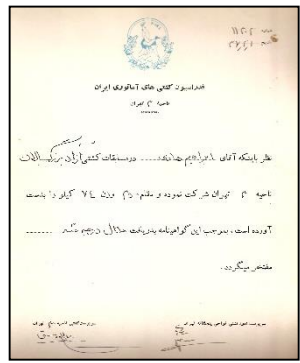 فدراسیون کشتی های آماتوری ایران
ناحیه ۳ تهران
نظر باینکه آقای ابراهیم هادی در مسابقات کشتی آزاد بزرگسالان
ناحیه ۳ تهران شرکت نموده و مقام وزن ۷۴ کیلو را بدست
آورده است، بموجب این گواهینامه بدریافت مدال درجه
مفتخر میگردد.
تهران
تهران